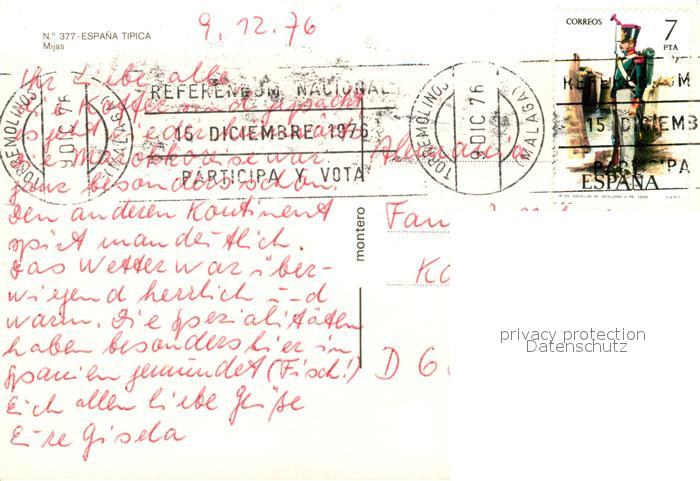 9.12.76
N.º 377 - ESPAÑA TIPICA
Mijas
CORREOS 7
PTA
Ihr Liebe alle
REFERENDUM NACIONAL
15 DICIEMBRE 1976
PARTICIPA Y VOTA
TORREMOLINOS
9 DIC 76
(MALAGA)
TORREMOLINOS
9 DIC 76
(MALAGA)
REFERE M
15 DICIEMB
PARTICIPA
ESPAÑA
Die Koffer sind gepackt
es geht wieder heimwärts
Die Marokkoreise war
ganz besonders schön.
Den anderen Kontinent
spürt man deutlich.
Das Wetter war über-
wiegend herrlich und
warm. Die Spezialitäten
haben besonders hier in
Spanien gemundet (Fisch!)
Euch allen liebe Grüße
Eure Gisela
montero
Alemania
Fam
Kö
D 6
privacy protection
Datenschutz